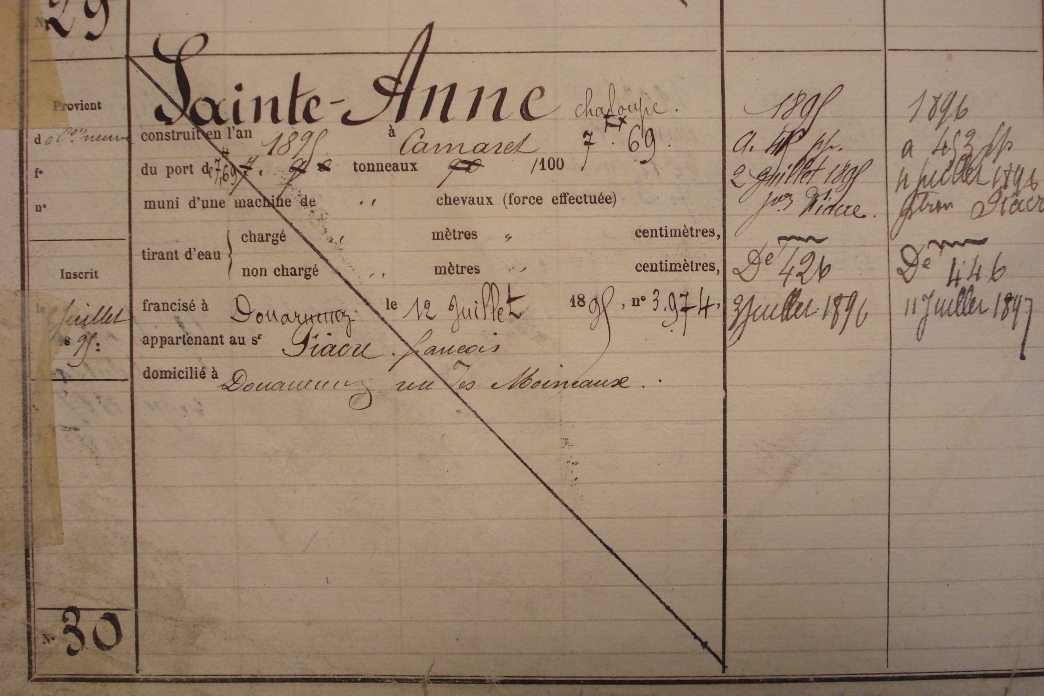 N. 29
Sainte-Anne chaloupe.
Provient
d
f°
n°
Inscrit
le Juillet
1895:
N. 30
construit en l'an 1895 à Camaret 7 Tx 69.
du port de 7,69 tonneaux /100
muni d'une machine de „ chevaux (force effectuée)
tirant d'eau { chargé „ mètres „ centimètres,
non chargé „ mètres „ centimètres,
francisé à Douarnenez le 12 Juillet 1895, n° 3.974,
appartenant au sr Fiacre françois
domicilié à Douarnenez rue des Moineaux.
1895
a. pp.
2 Juillet 1895
Fiacre.
De 426
3 Juillet 1896
1896
a 453 pp
Juillet 1896
Fiacre
De 446
11 Juillet 1897